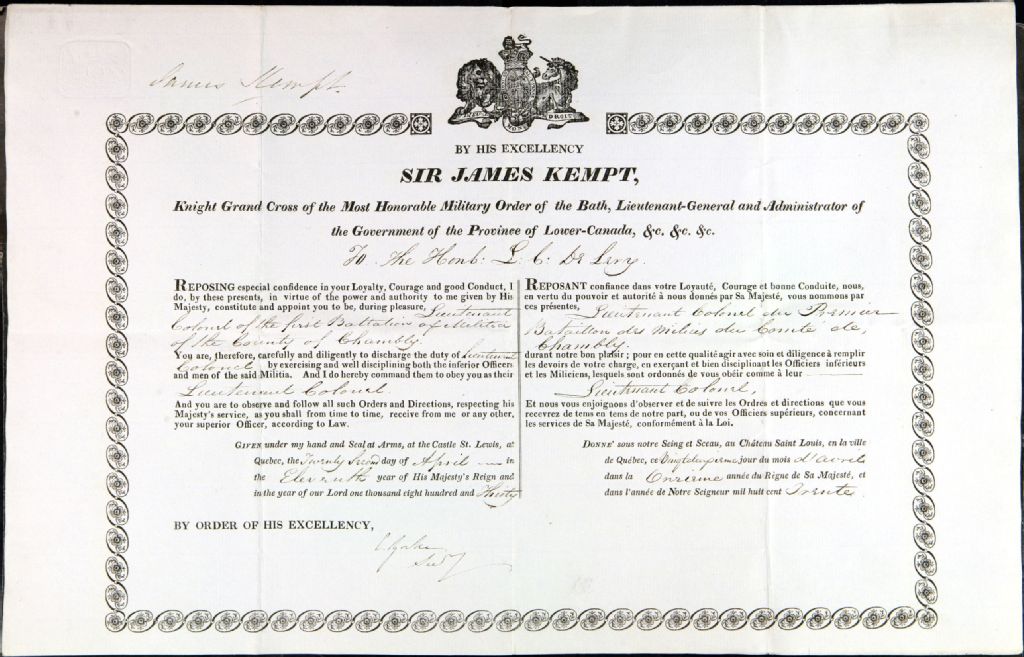 James Kempt.
DIEU ET MON DROIT
BY HIS EXCELLENCY
SIR JAMES KEMPT,
Knight Grand Cross of the Most Honorable Military Order of the Bath, Lieutenant-General and Administrator of
the Government of the Province of Lower-Canada, &c. &c. &c.
To the Honb: L. C. De Lery
REPOSING especial confidence in your Loyalty, Courage and good Conduct, I
do, by these presents, in virtue of the power and authority to me given by His
Majesty, constitute and appoint you to be, during pleasure, Lieutenant
Colonel of the first Battalion of Militia
of the County of Chambly.
You are, therefore, carefully and diligently to discharge the duty of Lieutenant
Colonel by exercising and well disciplining both the inferior Officers
and men of the said Militia. And I do hereby command them to obey you as their
Lieutenant Colonel
And you are to observe and follow all such Orders and Directions, respecting his
Majesty's service, as you shall from time to time, receive from me or any other,
your superior Officer, according to Law.
GIVEN under my hand and Seal at Arms, at the Castle St. Lewis, at
Quebec, the Twenty Second day of April in
the Eleventh year of His Majesty's Reign and
in the year of our Lord one thousand eight hundred and Thirty
REPOSANT confiance dans votre Loyauté, Courage et bonne Conduite, nous,
en vertu du pouvoir et autorité à nous donnés par Sa Majesté, vous nommons par
ces présentes, Lieutenant Colonel du Premier
Bataillon des Milices du Comté de
Chambly.
durant notre bon plaisir; pour en cette qualité agir avec soin et diligence à remplir
les devoirs de votre charge, en exerçant et bien disciplinant les Officiers inférieurs
et les Miliciens, lesquels sont ordonnés de vous obéir comme à leur
Lieutenant Colonel,
Et nous vous enjoignons d'observer et de suivre les Ordres et directions que vous
recevrez de tems en tems de notre part, ou de vos Officiers supérieurs, concernant
les services de Sa Majesté, conformément à la Loi.
DONNE' sous notre Seing et Sceau, au Château Saint Louis, en la ville
de Québec, ce Vingtdeuxieme jour du mois d'avril
dans la Onzieme année du Règne de Sa Majesté, et
dans l'année de Notre Seigneur mil huit cent Trente.
BY ORDER OF HIS EXCELLENCY,